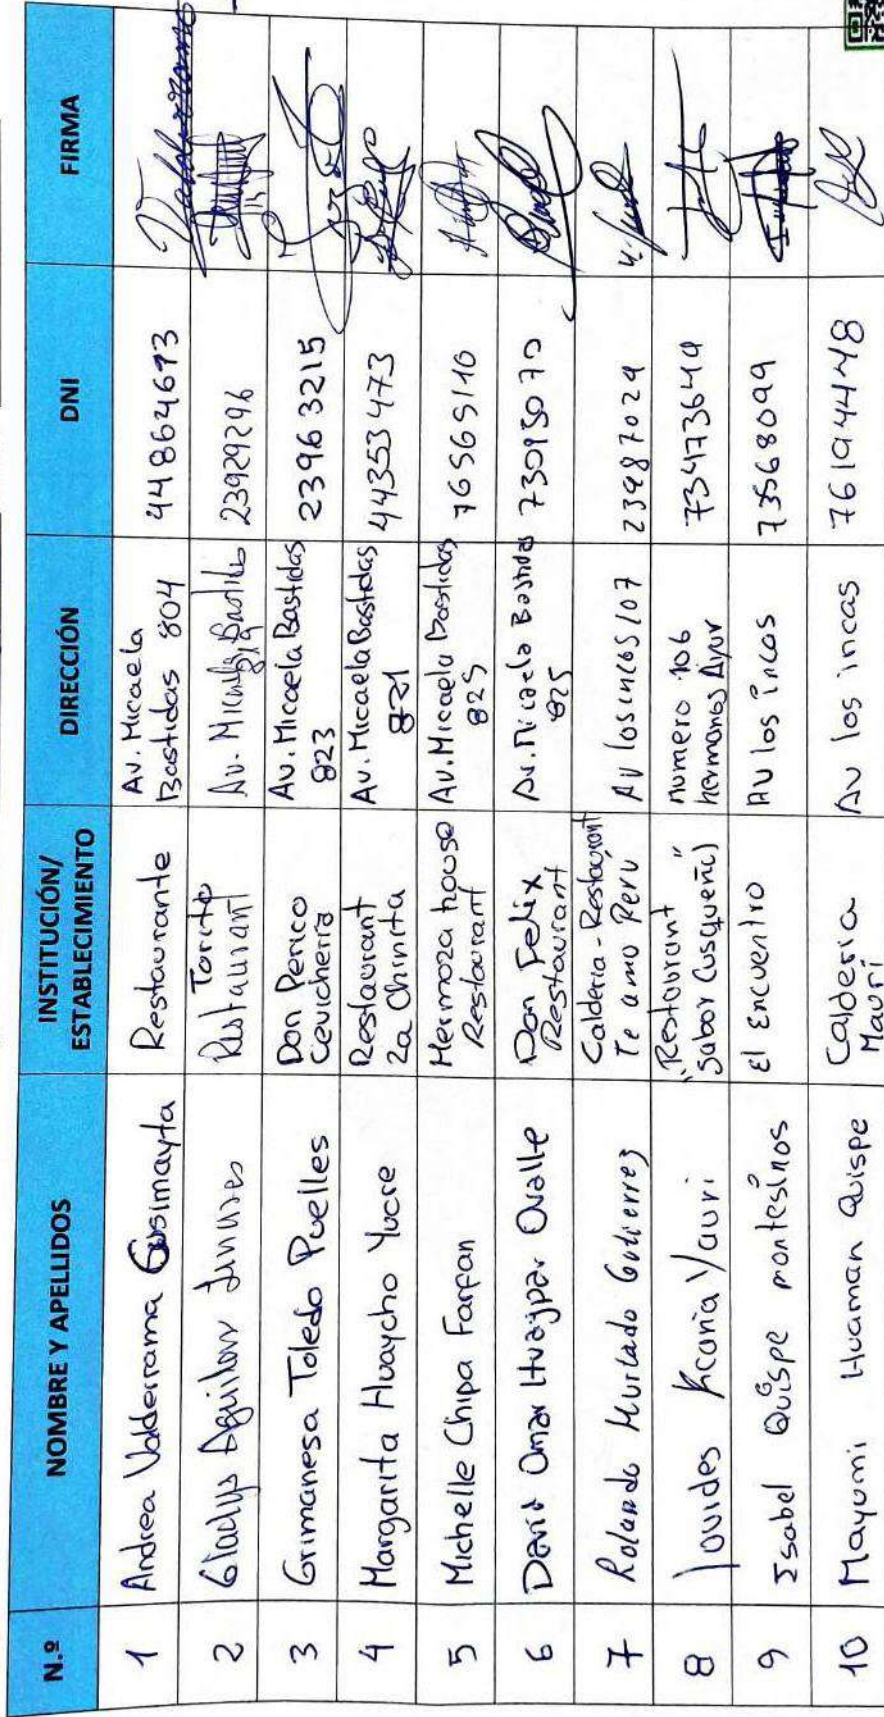 N.º NOMBRE Y APELLIDOS INSTITUCIÓN/ ESTABLECIMIENTO DIRECCIÓN DNI FIRMA
1 Andrea Valderrama Cusimayta Restaurante Av. Micaela Bastidas 804 448624673
2 Gladys Aguilar Linares Torito Restaurant Av. Micaela Bastidas 819 23929296
3 Grimanesa Toledo Puelles Don Perico Cevicheria Av. Micaela Bastidas 823 23963215
4 Margarita Huaycho Yucre Restaurant La Chinita Av. Micaela Bastidas 821 44353473
5 Michelle Chipa Farfan Hermoza house Restaurant Av. Micaela Bastidas 825 76565116
6 David Omar Huaypar Ovalle Don Felix Restaurant Av. Micaela Bastidas 825 73015070
7 Rolando Hurtado Gutierrez Calderia - Restaurant Te amo Peru Av los incas 107 23987029
8 Lourdes Yauri "Restaurant Sabor Cusqueñi" numero 106 hermanos Ayar 73473649
9 Isabel Quispe montesinos El Encuentro Av los incas 73568099
10 Mayumi Huaman Quispe Calderia Mauri Av los incas 76194448